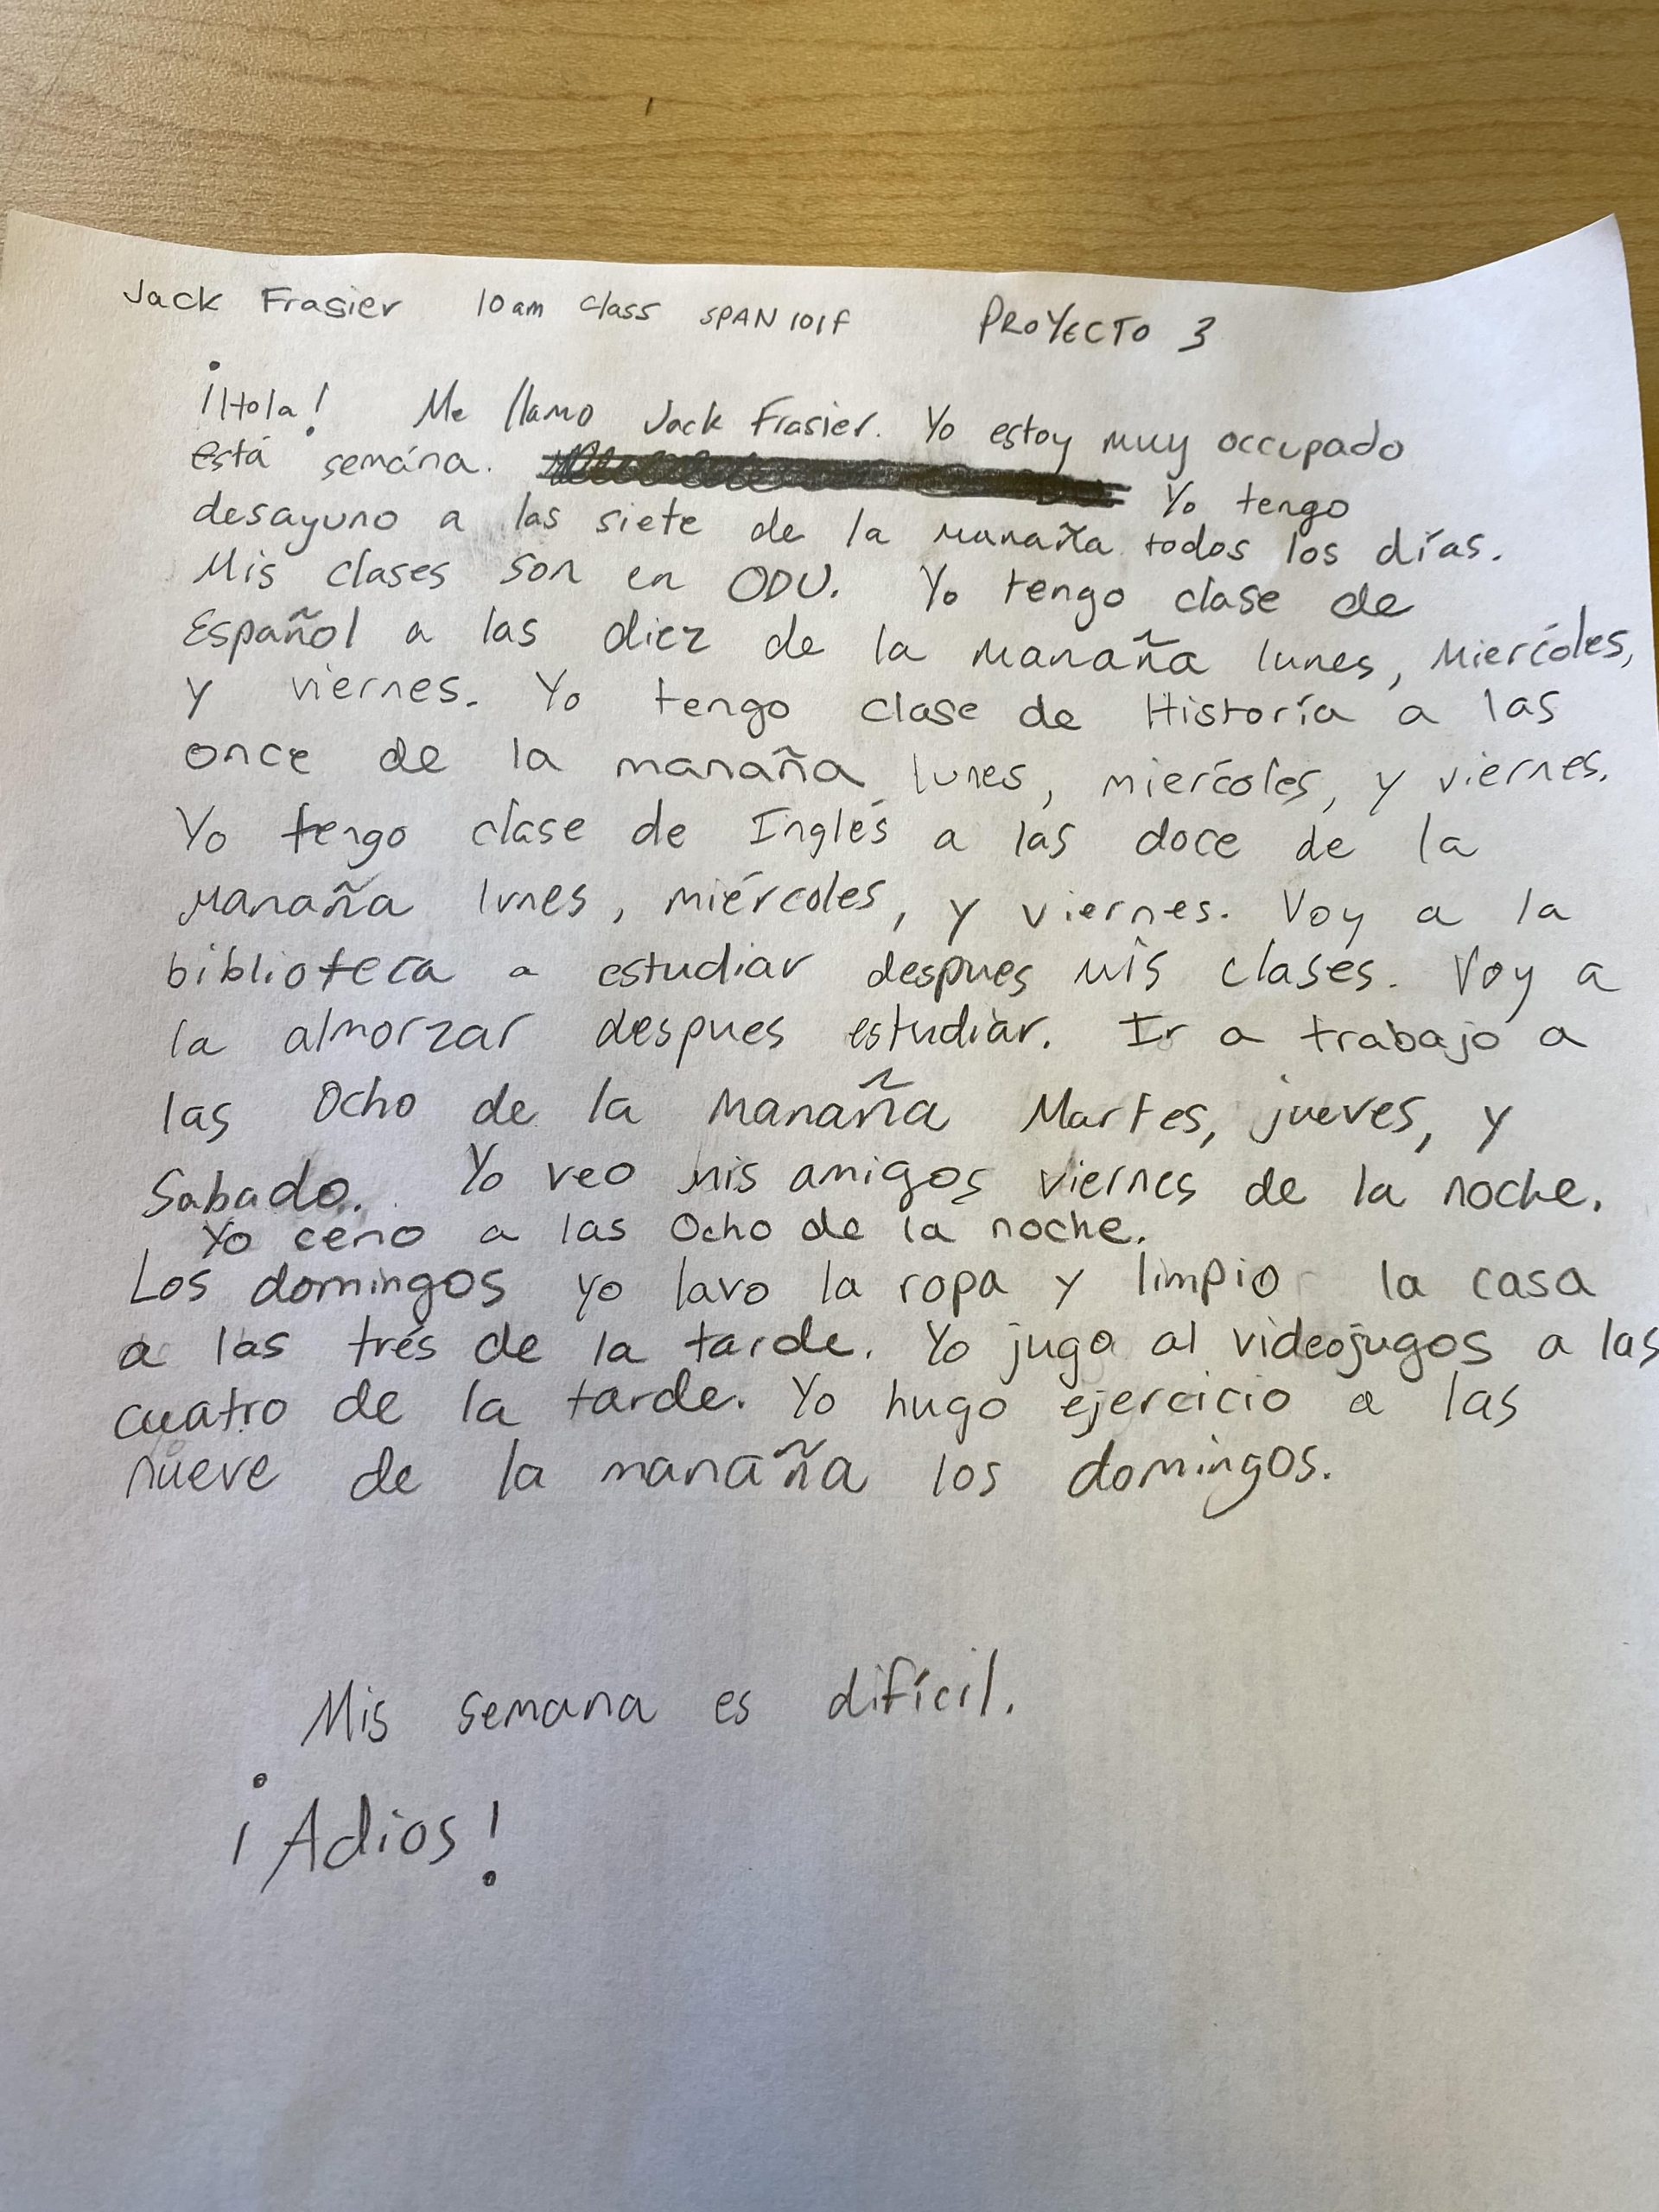 Jack Frasier 10am class SPAN 101F PROYECTO 3
¡Hola! Me llamo Jack Frasier. Yo estoy muy occupado
está semána. Yo tengo
desayuno a las siete de la manaña todos los días.
Mis clases son en ODU. Yo tengo clase de
Español a las diez de la manaña lunes, Miercóles,
y viernes. Yo tengo clase de Historía a las
once de la manaña lunes, miercóles, y viernes.
Yo tengo clase de Inglés a las doce de la
manaña lunes, miércoles, y viernes. Voy a la
biblioteca a estudiar despues mis clases. Voy a
la almorzar despues estudiar. Ir a trabajo a
las Ocho de la Manaña Martes, jueves, y
Sabado. Yo veo mis amigos viernes de la noche.
Yo ceno a las Ocho de la noche.
Los domingos yo lavo la ropa y limpio la casa
a las trés de la tarde. Yo jugo al videojugos a las
cuatro de la tarde. Yo hugo ejercicio a las
nueve de la manaña los domingos.
Mis semana es difícil.
¡Adios!